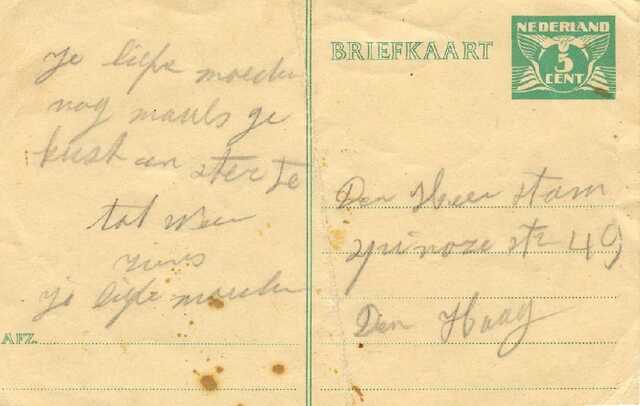 Je liefe moeder
nog maals ge
kust en sterkte
tot weer
ziens
Je liefe moeder
AFZ.
BRIEFKAART
NEDERLAND
5
CENT
Den Heer Stam
str 49
Den Haag